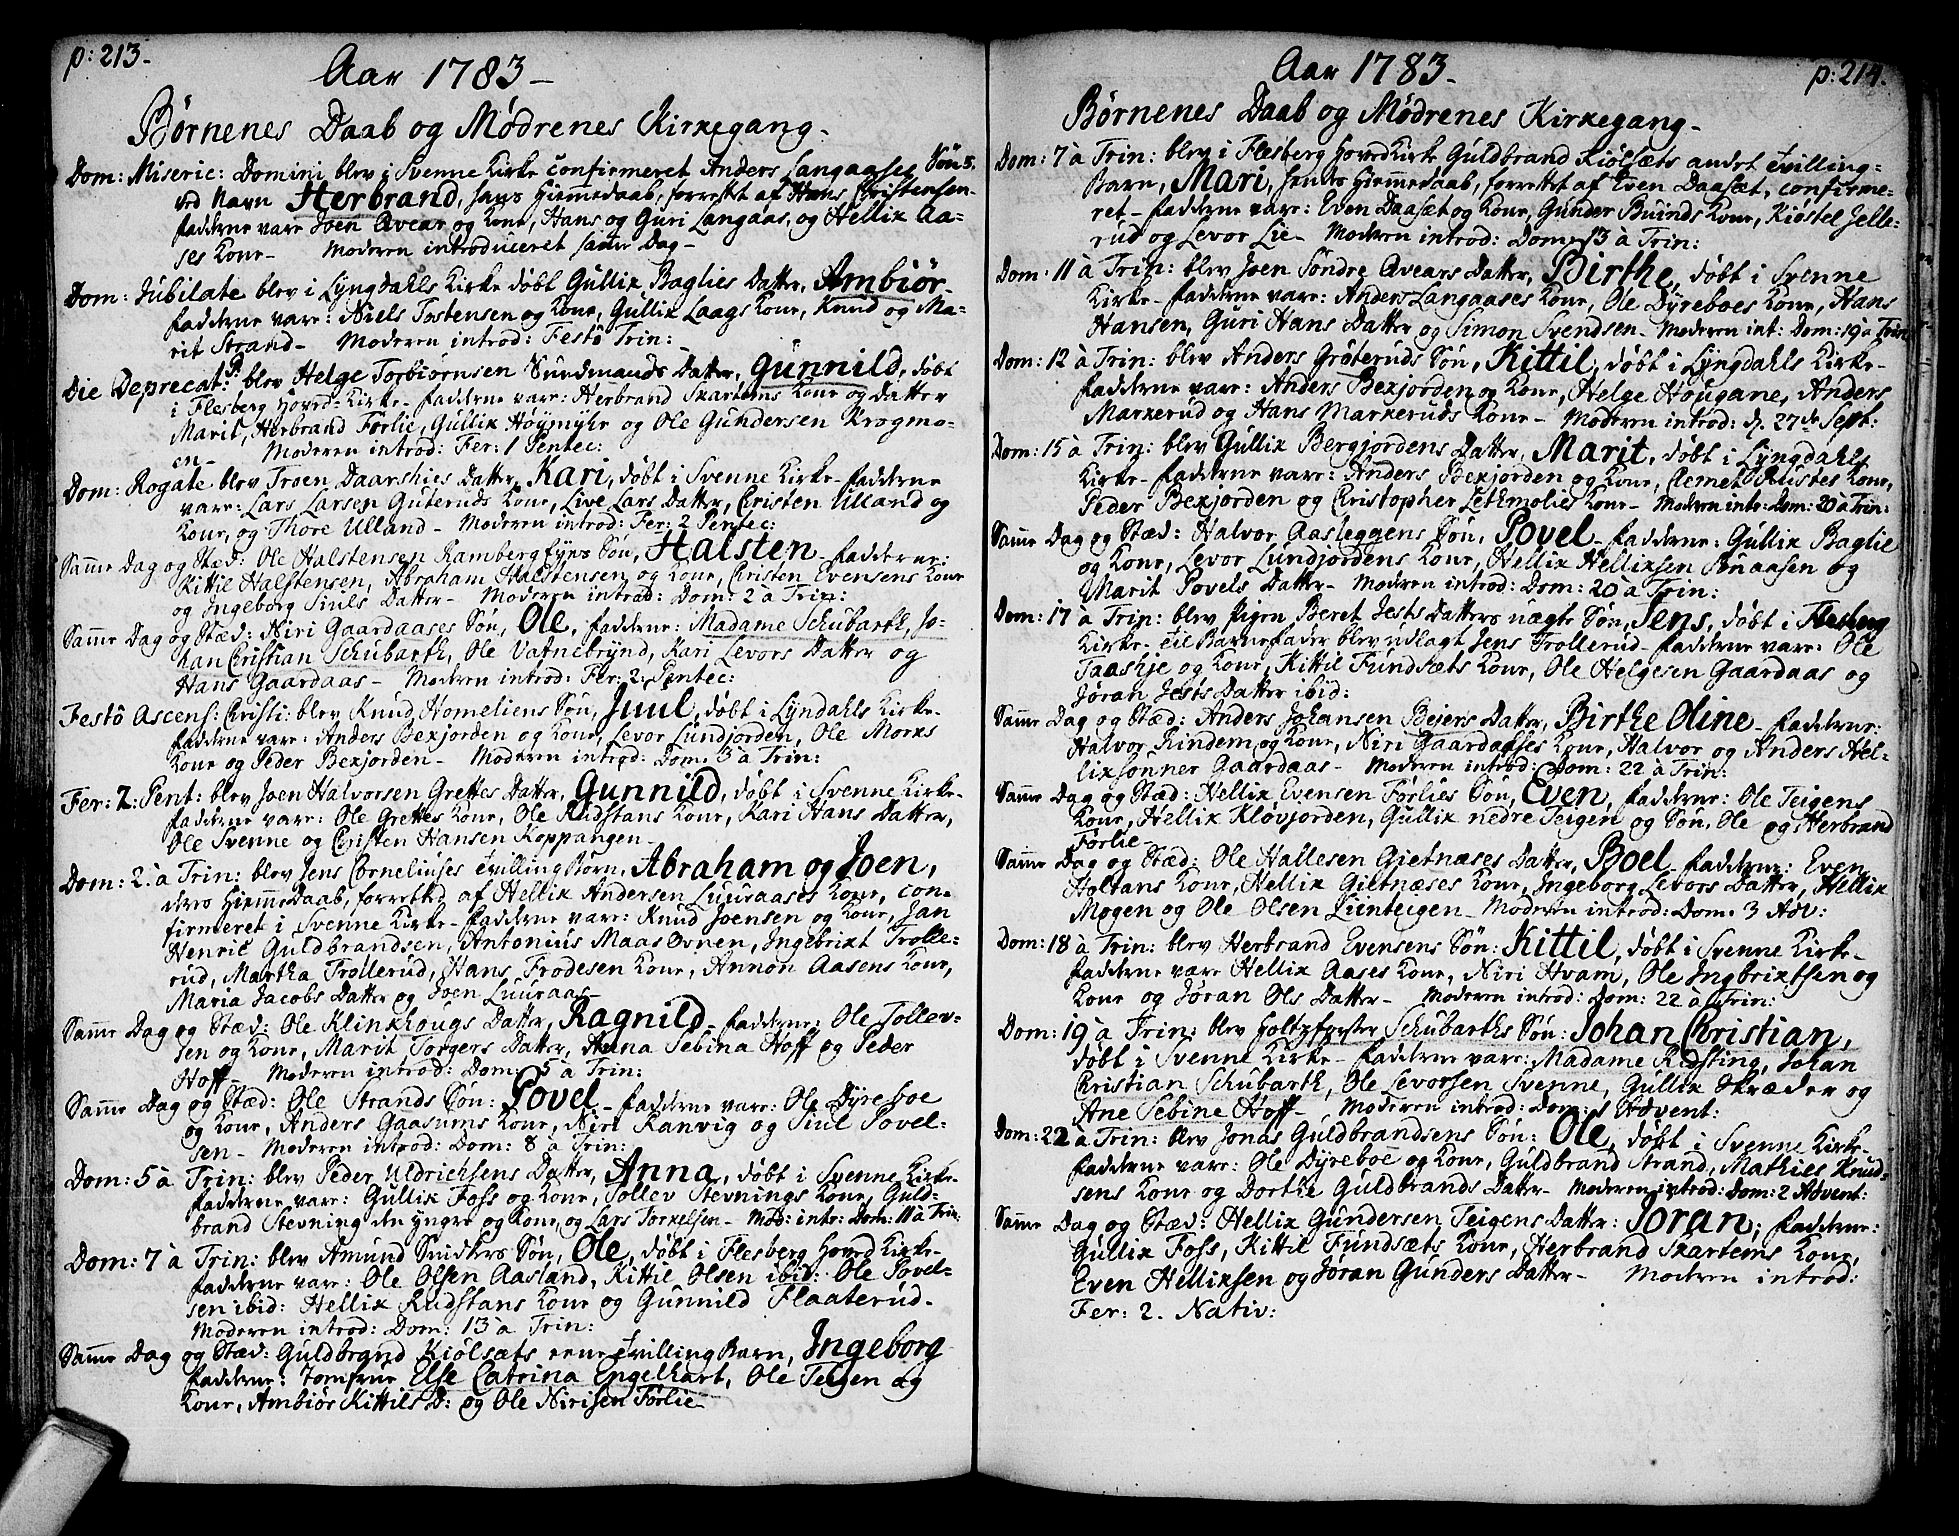 p: 213.
Aar 1783 —
Børnenes Daab og Mødrenes Kirkegang.
Dom: Miseric: Domini blev i Svenne Kirke confirmeret Anders Langaases Søn
ved Navn Herbrand, hans Hiemmedaab, forrettet af Hans Christensen.
fadderne vare Joen Avear og Kone, Hans og Guri Langaas, og Hellix Aa=
ses Kone — Moderen introduceret samme Dag —
Dom: Jubilate blev i Lyngdahls Kirke døbt Gullix Baglies Datter, Ambiør.
fadderne vare: Niels Tostensen og Kone, Gullix Laags Kone, Knud og Ma=
rit Strand — Moderen introd: Festô Trin:
Die Deprecat: blev Helge Torbiørnsen Sundmands Datter, Gunnild, døbt
i Flesberg Hoved-Kirke — fadderne vare: Herbrand Skartems Kone og Datter
Marit, Herbrand Førlie, Gullix Høymyhr og Ole Gundersen Krogmo=
en — Moderen introd: Fer: 1 Pentec:
Dom: Rogate blev Troen Daarshies Datter, Kari, døbt i Svenne Kirke — fadderne
vare: Lars Larsen Guteruds Kone, Live Lars Datter, Christen Ulland og
Kone, og Thore Ulland — Moderen introd: Fer: 2 Pentec:
Samme Dag og Stæd: Ole Halstensen Rambergeyes Søn, Halsten — fadderne:
Kittil Halstensen, Abraham Halstensen og Kone, Christen Evensens Kone
og Ingeborg Siuls Datter — Moderen introd: Dom: 2 à Trin:
Samme Dag og Stæd: Niri Gaardaases Søn, Ole, fadderne: Madame Schubarth, Jo=
han Christian Schubarth, Ole Vatnebrynd, Kari Levors Datter og
Hans Gaardaas — Moderen introd: Fer: 2. Pentec:
Festô Ascens: Christi: blev Knud Homeliens Søn, Juul, døbt i Lyndahls Kirke.
fadderne vare: Anders Bexjorden og Kone, Levor Lundjorden, Ole Morks
Kone og Peder Bexjorden — Moderen introd: Dom. 3 à Trin:
Fer: 2: Pent: blev Joen Halvorsen Grettes Datter, Gunnild, døbt i Svenne Kirke.
fadderne vare: Ole Grettes Kone, Ole Rudstans Kone, Kari Hans Datter,
Ole Svenne og Christen Hansen Koppangen —
Dom: 2. à Trin: blev Jens Corneliuses Tvilling Børn, Abraham og Joen,
ders HiemmeDaab, forretted af Hellix Andersen Luuraases Kone, con=
firmeret i Svenne Kirke — fadderne vare: Knud Joensen og Kone, Jan
Henric Guldbrandsen, Antonius Maas Ovnen, Ingebrixt Trolle=
rud, Martha Trollerud, Hans Frodesen Kone, Annon Aasens Kone,
Maria Jacobs Datter og Joen Luuraas —
Samme Dag og Stæd: Ole Klinkhougs Datter, Ragnild — fadderne: Ole Tollev=
sen og Kone, Marit Torgers Datter, Anna Sebina Hoff og Peder
Hoff — Moderen introd: Dom: 5 à Trin:
Samme Dag og Stæd: Ole Strands Søn: Povel — fadderne vare: Ole Dyreboe
og Kone, Anders Gaasums Kone, Niri Kanvig og Siul Povel=
sen — Moderen introd: Dom: 8 à Trin:
Dom: 5 à Trin: blev Peder Uldrichsens Datter, Anna, døbt i Svenne Kirke.
fadderne vare: Gullix Foss og Kone, Tollev Stevnings Kone, Guld=
brand Stevning den yngre og Kone, og Lars Torkelsen — Mod: intr: Dom: 11 à Trin:
Dom: 7 à Trin: blev Amund Snidkers Søn, Ole, døbt i Flesberg Hoved Kirke.
fadderne vare: Ole Olsen Aasland, Kittil Olsen ibid: Ole Povel=
sen ibid: Hellix Rudstans Kone og Gunnild Flaaterud.
Moderen introd: Dom: 13 à Trin:
Samme Dag og Stæd: Guldbrand Kiølsæts eene Tvilling Barn, Ingeborg
fadderne: Jomfrue Else Catrina Engelhart, Ole Teigen og
Kone, Ambiør Kittils D: og Ole Nirisen Førlie —
Aar 1783.
p: 214.
Børnenes Daab og Mødrenes Kirkegang —
Dom: 7 à Trin: blev i Flesberg Hoved Kirke Guldbrand Kiølsæts andet Tvilling=
Barn, Mari, hendes Hiemmedaab, forrettet af Even Daasæt, confirme=
ret — fadderne vare: Even Daasæt og Kone, Gunder Buinds Kone, Kiøstel Jelle=
rud og Levor Lie — Moderen introd: Dom: 13 à Trin:
Dom: 11 à Trin: blev Joen Søndre Avears Datter, Birthe, døbt i Svenne
Kirke — fadderne vare: Anders Langaases Kone, Ole Dyreboes Kone, Hans
Hansen, Guri Hans Datter og Simon Svendsen — Moderen int: Dom: 19 à Trin
Dom: 12 à Trin: blev Anders Grøteruds Søn, Kittil, døbt i Lyngdahls Kirke.
fadderne vare: Anders Bexjorden og Kone, Helge Hougane, Anders
Markerud og Hans Markeruds Kone — Moderen introd: d. 27de Sept:
Dom: 15 à Trin: blev Gullix Bergjordens Datter, Marit, døbt i Lyngdahls
Kirke — fadderne vare: Anders Bexjorden og Kone, Clemet Rustes Kone,
Peder Bexjorden og Christopher Lethmolies Kone — Moderen intr: Dom: 20 à Trin:
Samme Dag og Stæd: Halvor Aasleggens Søn, Povel — fadderne: Gullix Baglie
og Kone, Levor Lundjordens Kone, Hellix Hellixsen Sønaasen og
Marit Povels Datter — Moderen introd: Dom: 20 à Trin:
Dom: 17 à Trin: blev Pigen Beret Jests Datters uægte Søn, Jens, døbt i Flesberg
Kirke — til Barnefader blev udlagt Jens Trollerud — fadderne vare: Ole
Taashje og Kone, Kittil Fundsæts Kone, Ole Helgesen Gaardaas og
Jøran Jests Datter ibid:
Samme Dag og Stæd: Anders Johansen Bejers Datter, Birthe Oline — fadderne:
Halvor Rindem og Kone, Niri Gaardaases Kone, Halvor og Anders Hel=
lixsønner Gaardaas — Moderen introd: Dom: 22 à Trin:
Samme Dag og Stæd: Hellix Evensen Førlies Søn, Even, fadderne: Ole Teigens
Kone, Hellix Kløvjorden, Gullix nedre Teigen og Søn, Ole og Herbrand
Førlie —
Samme Dag og Stæd: Ole Hallesen Gietnæses Datter, Boel — fadderne: Even
Holtans Kone, Hellix Gietnæses Kone, Ingeborg Levors Datter, Hellix
Mogen og Ole Olsen Liinteigen — Moderen introd: Dom. 3 Adv:
Dom: 18 à Trin: blev Herbrand Evensens Søn: Kittil, døbt i Svenne Kirke.
fadderne vare Hellix Aases Kone, Niri Hvam, Ole Ingbrixtsen og
Kone og Jøran Ols Datter — Moderen introd: Dom: 22 à Trin:
Dom: 19 à Trin: blev Holtzforster Schubarths Søn: Johan Christian,
døbt i Svenne Kirke — fadderne vare: Madame Ridsting, Johan
Christian Schubarth, Ole Levorsen Svenne, Gullix Skræder og
Ane Sebine Hoff — Moderen introd: Dom: 1 Advent:
Dom: 22 à Trin: blev Jonas Guldbrandsens Søn: Ole, døbt i Svenne Kirke.
fadderne vare: Ole Dyreboe og Kone, Guldbrand Strand, Mathies Knud=
sens Kone og Dorthe Guldbrands Datter — Moderen introd: Dom: 2 Advent:
Samme Dag og Stæd: Hellix Gundersen Teigens Datter: Joran; fadderne:
Gullix Foss, Kittil Fundsæts Kone, Herbrand Skartems Kone,
Even Hellixsen og Jøran Gunders Datter — Moderen introd:
Fer: 2. Nativ: